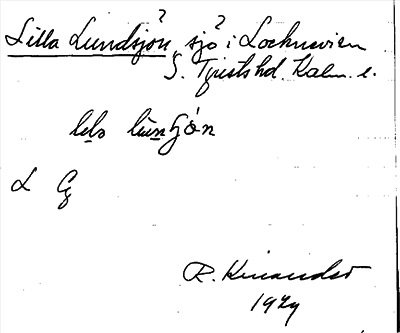 Lilla Lundsjön, sjö i Locknevien
S. Tjusts hd. Kalm. l.
lịla lūn
L G
R. Kinander
1929